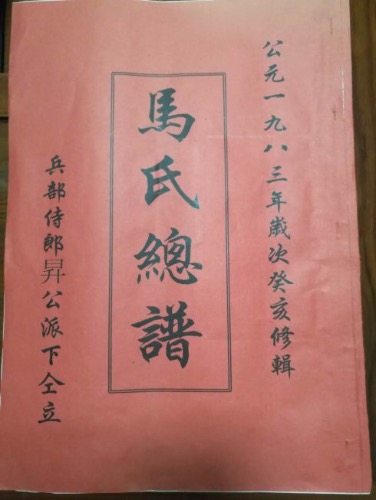 公元一九八三年歲次癸亥修輯
馬氏總譜
兵部侍郎昇公派下仝立